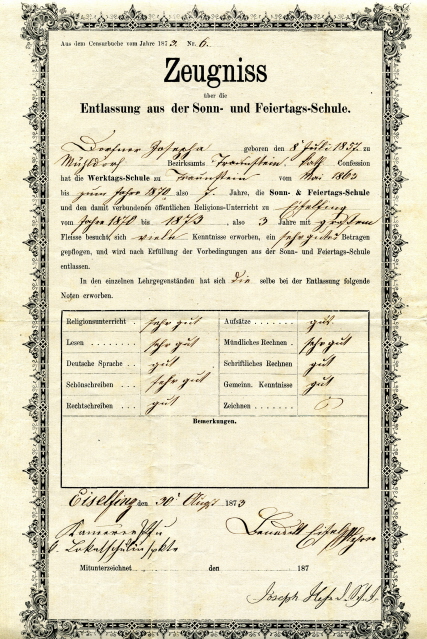 Aus dem Censurbuche vom Jahre 1873. Nr. 6.
Zeugniss
über die
Entlassung aus der Sonn- und Feiertags-Schule.
Dorfner Josepha geboren den 8 Juli 1857. zu
Mühldorf Bezirksamts Traunstein. kath. Confession
hat die Werktags-Schule zu Traunstein vom Mai 1863
bis zum Jahre 1870, also 7. Jahre, die Sonn- & Feiertags-Schule
und den damit verbundenen öffentlichen Religions-Unterricht zu Eiselfing
vom Jahre 1870 bis 1873, also 3 Jahre mit großem
Fleisse besucht, sich viele Kenntnisse erworben, ein sehr gutes Betragen
gepflogen, und wird nach Erfüllung der Vorbedingungen aus der Sonn- und Feiertags-Schule
entlassen.
In den einzelnen Lehrgegenständen hat sich die selbe bei der Entlassung folgende
Noten erworben.
Religionsunterricht . sehr gut Aufsätze . . . . . . . gut.
Lesen . . . . . . sehr gut Mündliches Rechnen . sehr gut
Deutsche Sprache . . gut Schriftliches Rechnen gut
Schönschreiben . . sehr gut Gemeinn. Kenntnisse gut
Rechtschreiben . . . gut Zeichnen . . . . . . .
Bemerkungen.
Eiselfing den 30t August 1873
Mitunterzeichnet den 187
Joseph